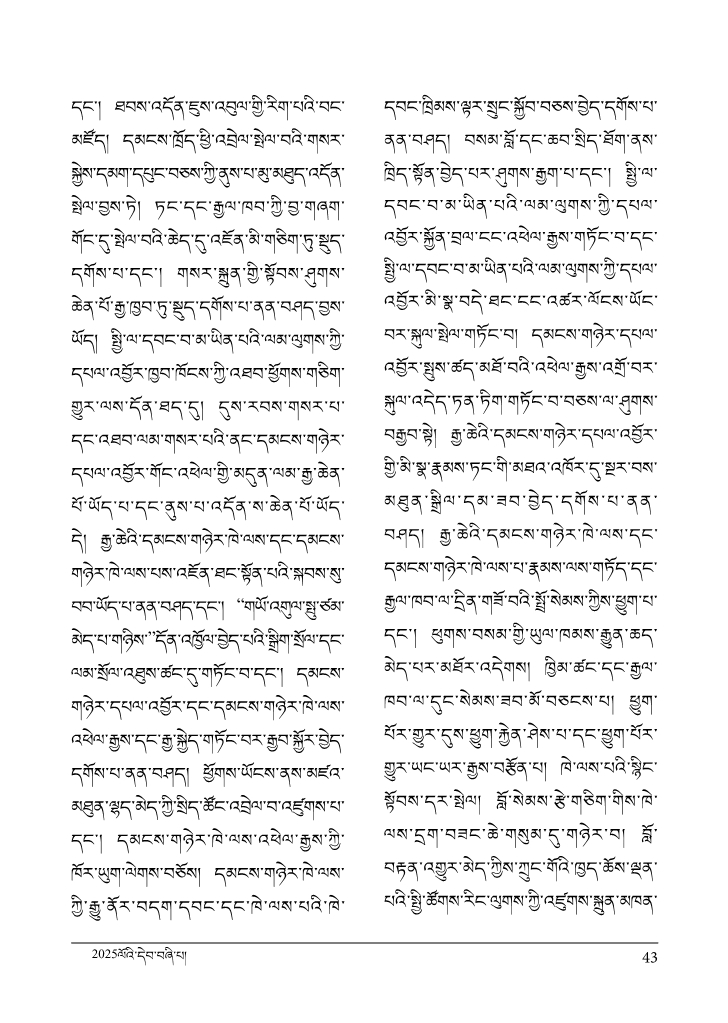 དང་། ཐབས་འདོན་ཇུས་འབུལ་གྱི་རིག་པའི་བང་
མཛོད། དམངས་ཁྲོད་ཕྱི་འབྲེལ་སྤེལ་བའི་གསར་
སྐྱེས་དམག་དཔུང་བཅས་ཀྱི་ནུས་པ་མུ་མཐུད་འདོན་
སྤེལ་བྱས་ཏེ། ཏང་དང་རྒྱལ་ཁབ་ཀྱི་བྱ་གཞག་
གོང་དུ་སྤེལ་བའི་ཆེད་དུ་འཛོན་མི་གཅིག་ཏུ་སྡུད་
དགོས་པ་དང་། གསར་སྐྲུན་གྱི་སྟོབས་ཤུགས་
ཆེན་པོ་རྒྱ་ཁྱབ་ཏུ་སྡུད་དགོས་པ་ནན་བཤད་བྱས་
ཡོད། སྤྱི་ལ་དབང་བ་མ་ཡིན་པའི་ལམ་ལུགས་ཀྱི་
དཔལ་འབྱོར་ཁྱབ་ཁོངས་ཀྱི་འཐབ་ཕྱོགས་གཅིག་
གྱུར་ལས་དོན་ཐད་དུ། དུས་རབས་གསར་པ་
དང་འཐབ་ལམ་གསར་པའི་ནང་དམངས་གཉེར་
དཔལ་འབྱོར་གོང་འཕེལ་གྱི་མདུན་ལམ་རྒྱ་ཆེན་
པོ་ཡོད་པ་དང་ནུས་པ་འདོན་ས་ཆེན་པོ་ཡོད་
དེ། རྒྱ་ཆེའི་དམངས་གཉེར་ཁེ་ལས་དང་དམངས་
གཉེར་ཁེ་ལས་པས་འཛོན་ཐང་སྟོན་པའི་སྐབས་སུ་
བབ་ཡོད་པ་ནན་བཤད་དང་། “གཡོ་འགུལ་སྤུ་ཙམ་
མེད་པ་གཉིས་”དོན་འཁྱོལ་བྱེད་པའི་སྒྲིག་སྲོལ་དང་
ལམ་སྲོལ་འཐུས་ཚང་དུ་གཏོང་བ་དང་། དམངས་
གཉེར་དཔལ་འབྱོར་དང་དམངས་གཉེར་ཁེ་ལས་
འཕེལ་རྒྱས་དང་རྒྱ་སྐྱེད་གཏོང་བར་རྒྱབ་སྐྱོར་བྱེད་
དགོས་པ་ནན་བཤད། ཕྱོགས་ཡོངས་ནས་མཛའ་
མཐུན་ལྷད་མེད་ཀྱི་སྲིད་ཚོང་འབྲེལ་བ་འཛུགས་པ་
དང་། དམངས་གཉེར་ཁེ་ལས་འཕེལ་རྒྱས་ཀྱི་
ཁོར་ཡུག་ལེགས་བཅོས། དམངས་གཉེར་ཁེ་ལས་
ཀྱི་རྒྱུ་ནོར་བདག་དབང་དང་ཁེ་ལས་པའི་ཁེ་
དབང་ཁྲིམས་ལྟར་སྲུང་སྐྱོབ་བཅས་བྱེད་དགོས་པ་
ནན་བཤད། བསམ་བློ་དང་ཆབ་སྲིད་ཐོག་ནས་
ཁྲིད་སྟོན་བྱེད་པར་ཤུགས་རྒྱག་པ་དང་། སྤྱི་ལ་
དབང་བ་མ་ཡིན་པའི་ལམ་ལུགས་ཀྱི་དཔལ་
འབྱོར་སྐྱོན་བྲལ་ངང་འཕེལ་རྒྱས་གཏོང་བ་དང་
སྤྱི་ལ་དབང་བ་མ་ཡིན་པའི་ལམ་ལུགས་ཀྱི་དཔལ་
འབྱོར་མི་སྣ་བདེ་ཐང་ངང་འཚར་ལོངས་ཡོང་
བར་སྐུལ་སྤེལ་གཏོང་བ། དམངས་གཉེར་དཔལ་
འབྱོར་སྤུས་ཚད་མཐོ་བའི་འཕེལ་རྒྱས་འགྲོ་བར་
སྐུལ་འདེད་ཏན་ཏིག་གཏོང་བ་བཅས་ལ་ཤུགས་
བརྒྱབ་སྟེ། རྒྱ་ཆེའི་དམངས་གཉེར་དཔལ་འབྱོར་
གྱི་མི་སྣ་རྣམས་ཏང་གི་མཐའ་འཁོར་དུ་སྔར་བས་
མཐུན་སྒྲིལ་དམ་ཟབ་བྱེད་དགོས་པ་ནན་
བཤད། རྒྱ་ཆེའི་དམངས་གཉེར་ཁེ་ལས་དང་
དམངས་གཉེར་ཁེ་ལས་པ་རྣམས་ལས་གཏོད་དང་
རྒྱལ་ཁབ་ལ་དྲིན་གཟོ་བའི་སྤྲོ་སེམས་ཀྱིས་ཕྱུག་པ་
དང་། ཕུགས་བསམ་གྱི་ཡུལ་ཁམས་རྒྱུན་ཆད་
མེད་པར་མཐོར་འདེགས། ཁྱིམ་ཚང་དང་རྒྱལ་
ཁབ་ལ་དུང་སེམས་ཟབ་མོ་བཅངས་པ། ཕྱུག་
པོར་གྱུར་དུས་ཕྱུག་རྐྱེན་ཤེས་པ་དང་ཕྱུག་པོར་
གྱུར་ཡང་ཡར་རྒྱས་བརྩོན་པ། ཁེ་ལས་པའི་སྙིང་
སྟོབས་དར་སྤེལ། བློ་སེམས་རྩེ་གཅིག་གིས་ཁེ་
ལས་དྲག་བཟང་ཆེ་གསུམ་དུ་གཉེར་བ། བློ་
བརྟན་འགྱུར་མེད་ཀྱིས་ཀྲུང་གོའི་ཁྱད་ཆོས་ལྡན་
པའི་སྤྱི་ཚོགས་རིང་ལུགས་ཀྱི་འཛུགས་སྐྲུན་མཁན་
2025ལོའི་དེབ་བཞི་པ།
43